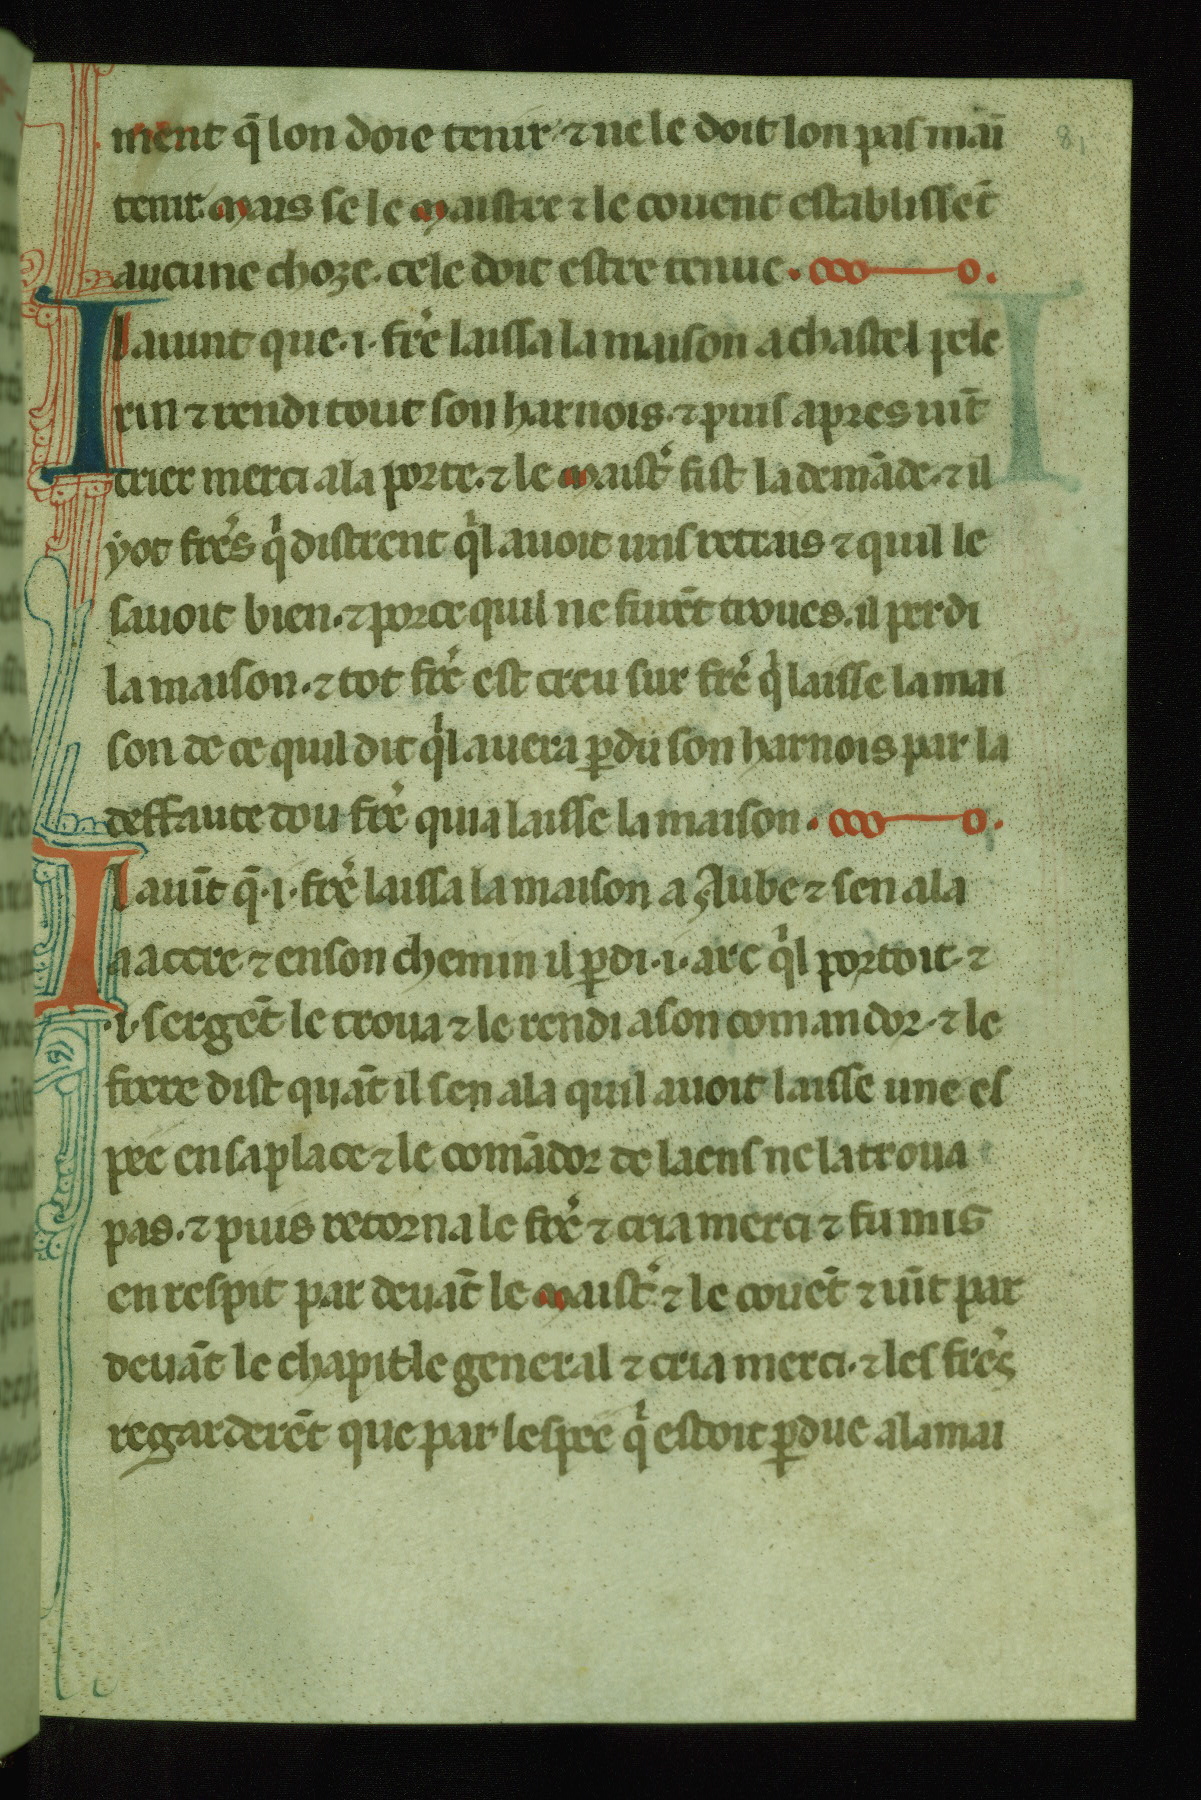 ment q̄ lon doie tenir ⁊ ne le doit lon pas mai᷑
tenir. mais se le maistre ⁊ le couent establisse᷑t
aucune choze. cele doit estre tenue.
Il auint que .i. fre᷑ laissa la maison a chastel pele
rin ⁊ rendi tout son harnois. ⁊ puis apres ui᷑t
crier merci a la porte. ⁊ le maist᷑ fist la demāde. ⁊ il
yot fre᷑s qͥ distrent qͥl auoit uns retrais ⁊ quil le
sauoit bien. ⁊ porce quil ne furēt troues. il perdi
la maison. ⁊ tot fre᷑ est creu sur fre᷑ qͥ laisse la mai
son de ce quil dit qͥl auera ꝑdu son harnois par la
deffaute dou fre᷑ qui a laisse la maison.
Il auīt q̄ .i. fre᷑ laissa la maison a Iube ⁊ sen ala
a accre ⁊ en son chemin il ꝑdi .i. arc qͥl portoit. ⁊
.i. sergēt le troua ⁊ le rendi a son comandor. ⁊ le
frere dist quāt il sen ala quil auoit laisse une es
pee en sa place ⁊ le comādor de laens ne la troua
pas. ⁊ puis retorna le fre᷑ ⁊ cria merci ⁊ fu mis
en respit par deuāt le maist᷑ ⁊ le couēt ⁊ uīt par
deuāt le chapitle general ⁊ cria merci. ⁊ les fre᷑s
regarderēt que par lespee qͥ estoit ꝑdue a la mai
81